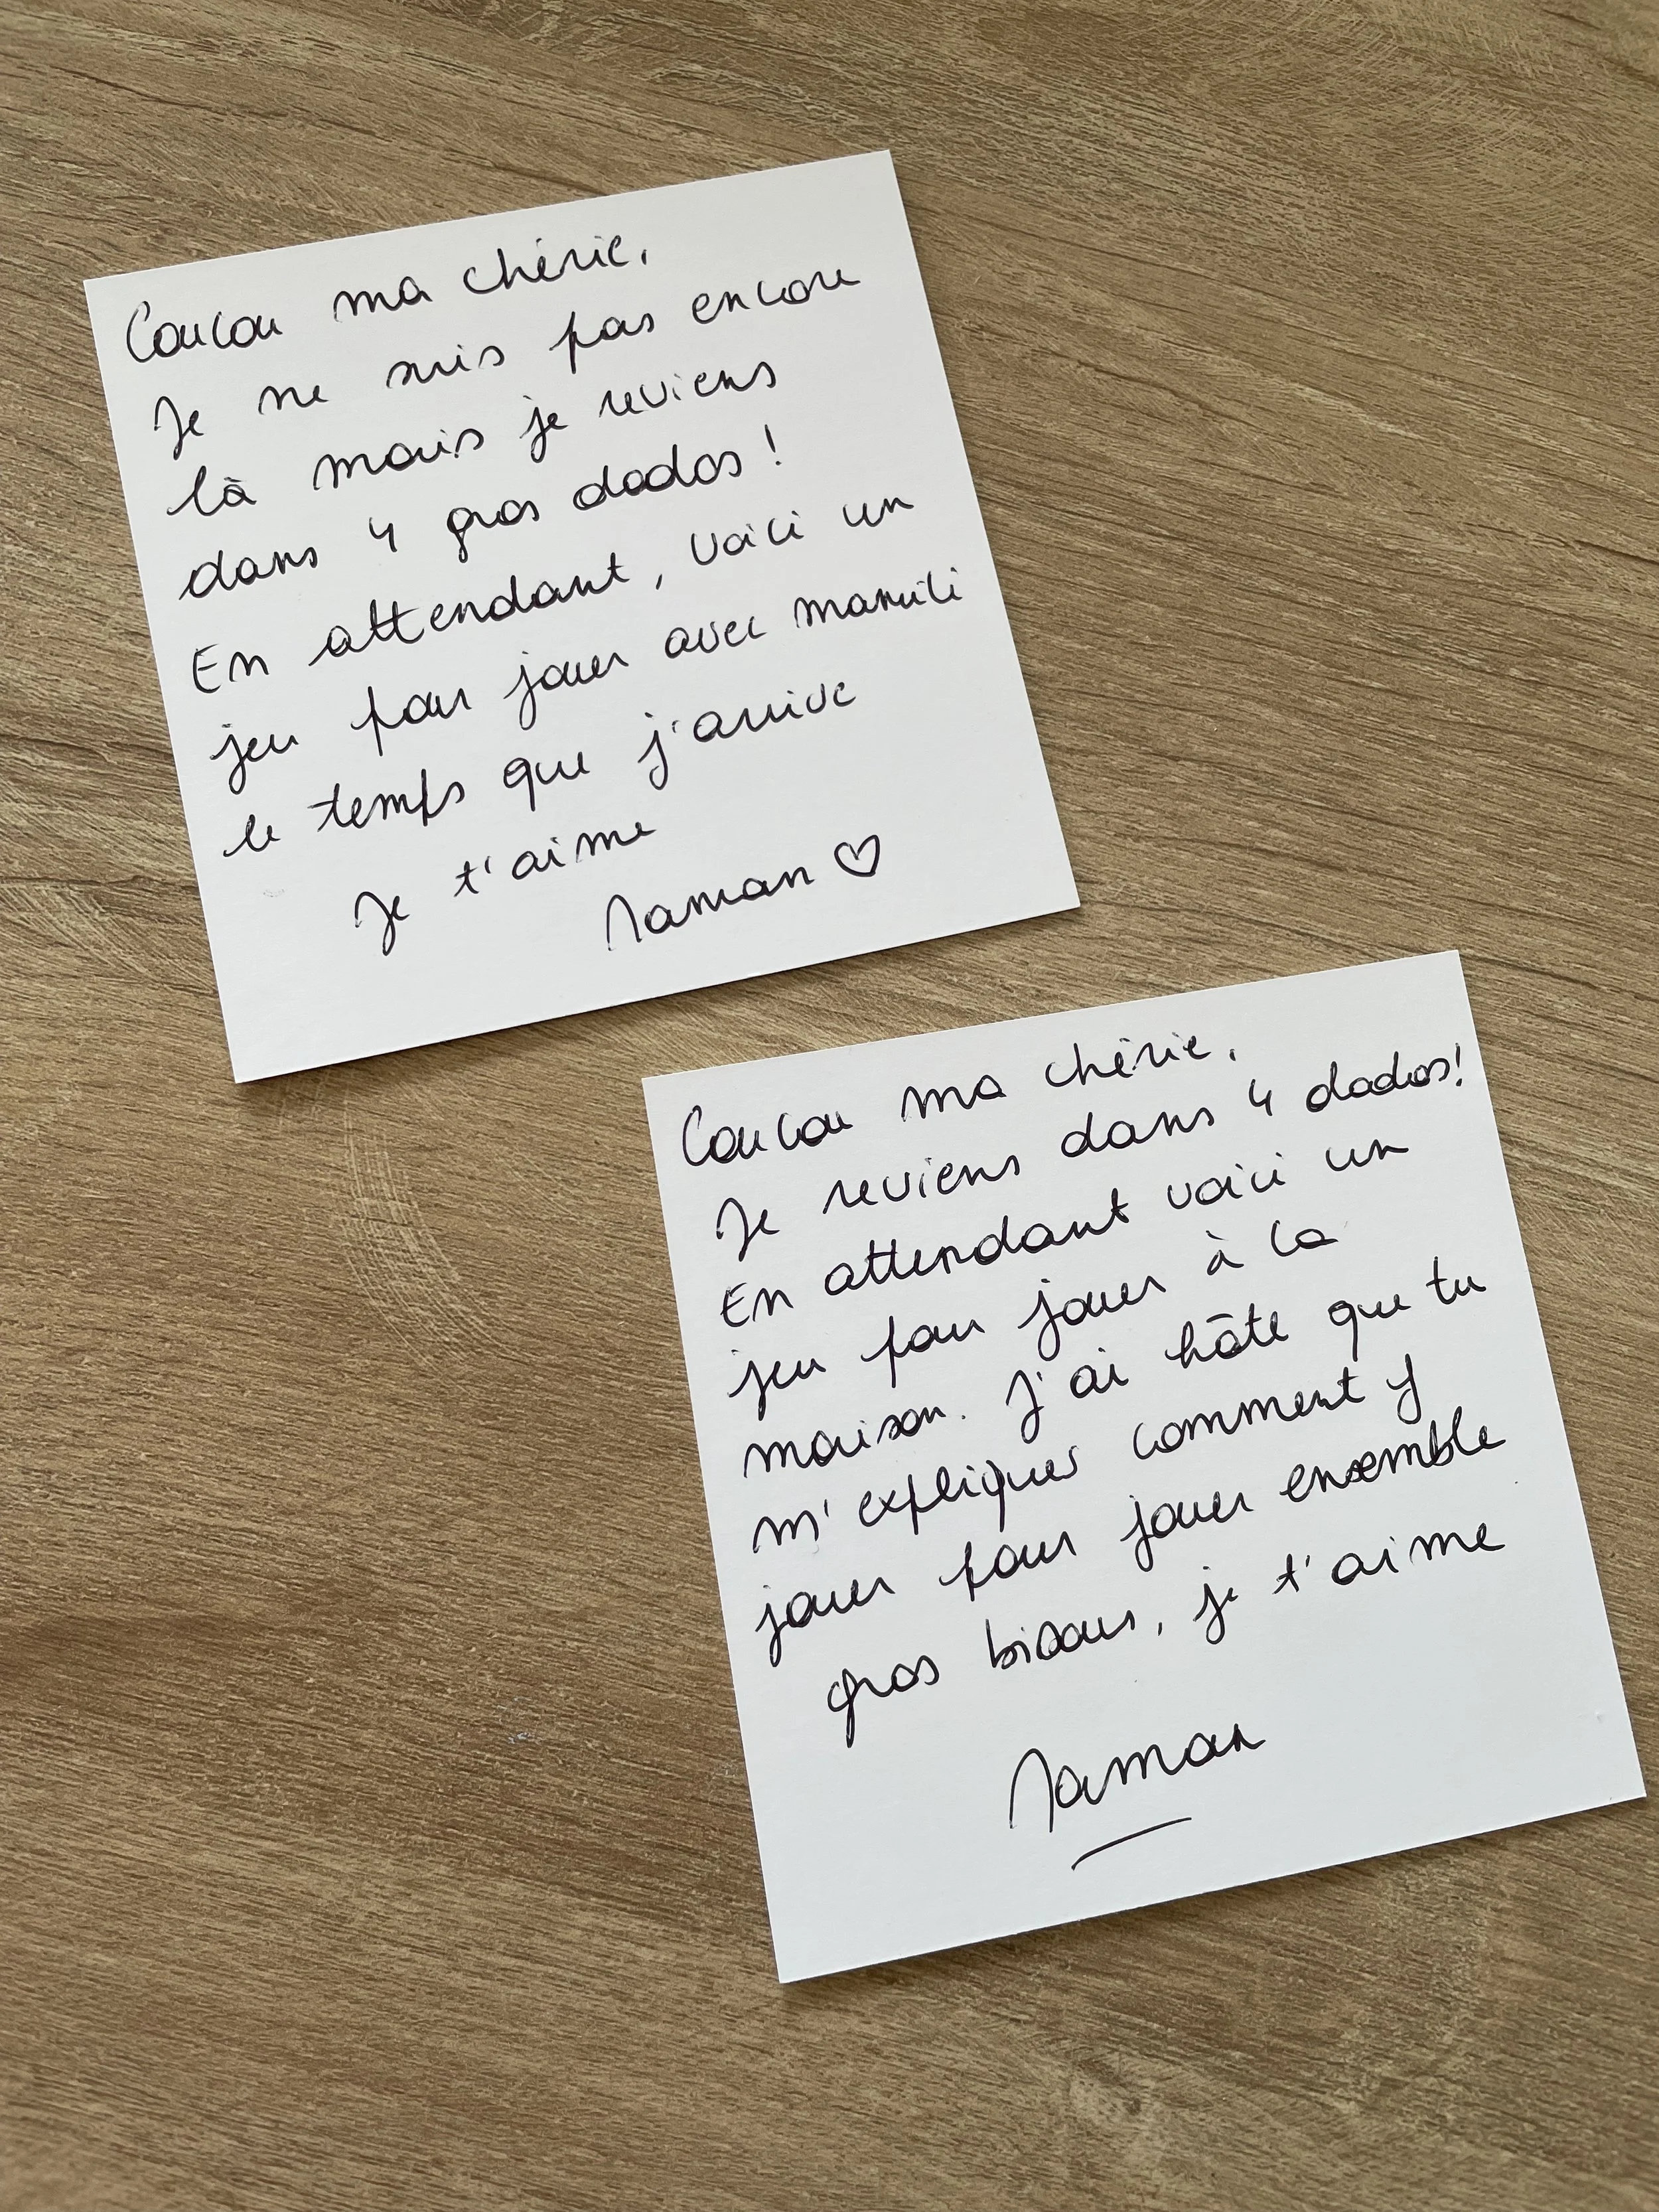 Coucou ma chérie,
Je ne suis pas encore
là mais je reviens
dans 4 gros dodos !
En attendant, voici un
jeu pour jouer avec
le temps que j'arrive
Je t'aime
Maman ♡
Coucou ma chérie,
Je reviens dans 4 dodos!
En attendant voici un
jeu pour jouer à la
maison. J'ai hâte que tu
m'expliques comment y
jouer pour jouer ensemble
gros bisous, je t'aime
Maman